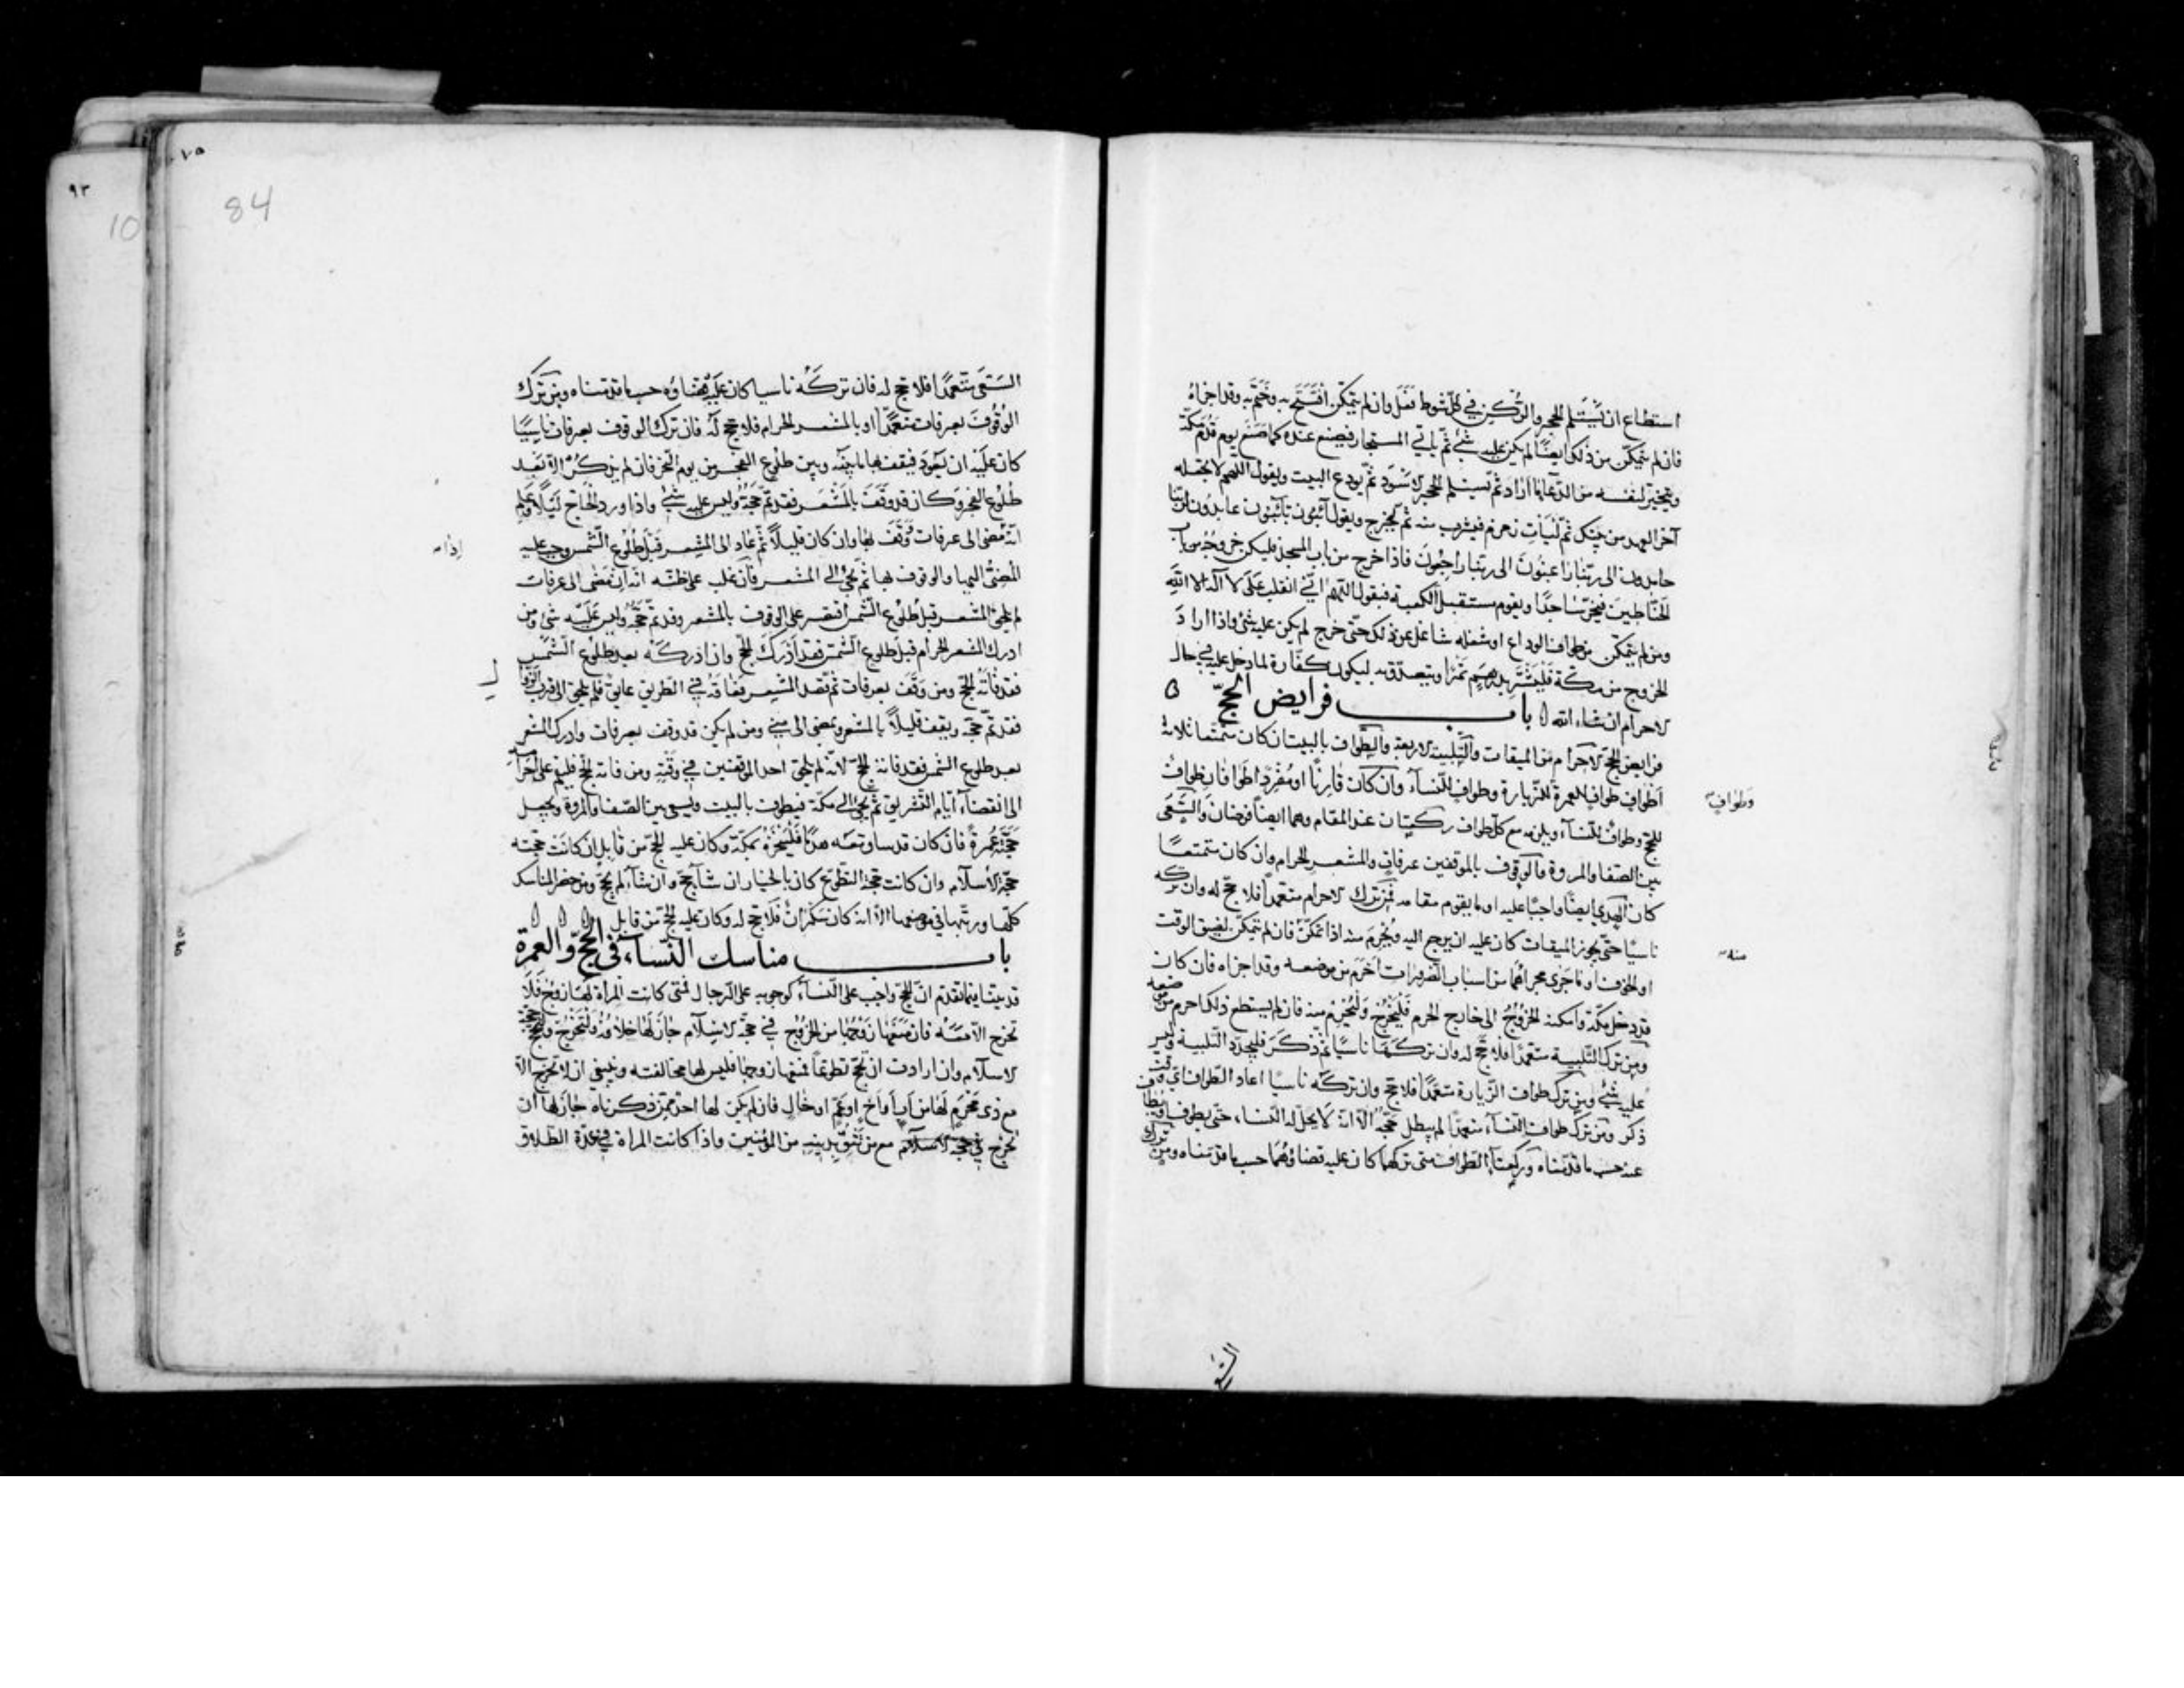 استطاع ان يستلم الحجر والركن في كل شوط فعل وان لم يتمكن افتتح به وختم به وقد اجزاه
فان لم يتمكن من ذلك ايضا لم يكن عليه شئ ثم ياتي المستجار فيصنع عنده كما صنع يوم قدم مكة
ويتخير لنفسه من الدعا ما اراد ثم يستلم الحجر الاسود ثم يودع البيت ويقول اللهم لا تجعله
آخر العهد من بيتك ثم ليات زمزم فيشرب منه ثم ليخرج ويقول آئبون تائبون عابدون لربنا
حامدون الى ربنا راغبون الى ربنا راجعون فاذا خرج من باب المسجد فليكن خروجه من باب
الحناطين فيخر ساجدا ويقوم مستقبل الكعبة فيقول اللهم اني انقلب على لا اله الا الله
ومن لم يتمكن من طواف الوداع او شغله شاغل عن ذلك حتى خرج لم يكن عليه شئ واذا اراد
الخروج من مكة فليشتر بدرهم تمرا ويتصدق به ليكون كفارة لما دخل عليه في حال
الاحرام ان شاء الله باب فرايض الحج
فرايض الحج الاحرام من الميقات والتلبية الاربعة والطواف بالبيت ان كان متمتعا ثلاثة
اطواف طواف للعمرة للزيارة وطواف للنساء وان كان قارنا او مفردا طوافان طواف
وطواف
للحج وطواف للنساء ويلزمه مع كل طواف ركعتان عند المقام وهما ايضا فرضان والسعى
بين الصفا والمروة والوقوف بالموقفين عرفات والمشعر الحرام وان كان متمتعا
كان الهدي ايضا واجبا عليه او ما يقوم مقامه فمن ترك الاحرام متعمدا فلا حج له وان تركه
ناسيا حتى يجوز الميقات كان عليه ان يرجع اليه ويحرم منه اذا تمكن فان لم يتمكن لضيق الوقت
منه
او الخوف او ما جرى مجراهما من اسباب الضرورات احرم من موضعه وقد اجزاه فان كان
قد دخل مكة وامكنه الخروج الى خارج الحرم فليخرج وليحرم منه فان لم يستطع ذلك احرم من موضعه
ومن ترك التلبية متعمدا فلا حج له وان تركها ناسيا ثم ذكر فليجدد التلبية وليس
عليه شئ ومن ترك طواف الزيارة متعمدا فلا حج وان تركه ناسيا اعاد الطواف اي وقت
ذكر ومن ترك طواف النساء متعمدا لم يبطل حجه الا انه لا يحل له النساء حتى يطوف او يطاف
عنه حسب ما قدمناه وركعتا الطواف متى تركهما كان عليه قضاؤهما حسب ما قدمناه ومن ترك
السعى
١٠٥
84
٩٣
10
السعى متعمدا فلا حج له فان تركه ناسيا كان عليه قضاؤه حسب ما قدمناه ومن ترك
الوقوف بعرفات متعمدا او بالمشعر الحرام فلا حج له فان ترك الوقوف بعرفات ناسيا
كان عليه ان يعود فيقف بها ما بينه وبين طلوع الفجر من يوم النحر فان لم يذكر الا بعد
طلوع الفجر وكان قد وقف بالمشعر فقد تم حجه وليس عليه شئ واذا ورد الحاج ليلا وعلم
انه مضى الى عرفات وقف بها وان كان قليلا ثم عاد الى المشعر قبل طلوع الشمس وجب عليه
اذا
المضى اليها والوقوف بها ثم يجئ الى المشعر فان غلب على ظنه انه ان مضى الى عرفات
لم يلحق المشعر قبل طلوع الشمس اقتصر على الوقوف بالمشعر وقد تم حجه وليس عليه شئ ومن
ادرك المشعر الحرام قبل طلوع الشمس فقد ادرك الحج وان ادركه بعد طلوع الشمس
فقد فاته الحج ومن وقف بعرفات ثم قصد المشعر فعاقه في الطريق عائق فلم يلحق الى قرب الزوال
فقد تم حجه ويقف قليلا بالمشعر ويمضى الى منى ومن لم يكن قد وقف بعرفات وادرك المشعر
بعد طلوع الشمس فقد فاته الحج لانه لم يلحق احد الموقفين في وقته ومن فاته الحج فليقم على احرامه
الى انقضاء ايام التشريق ثم يجئ الى مكة فيطوف بالبيت ويسعى بين الصفا والمروة ويجعل
حجته عمرة فان كان قد ساق معه هديا فلينحره بمكة وكان عليه الحج من قابل ان كانت حجته
حجة الاسلام وان كانت حجة التطوع كان بالخيار ان شاء حج وان شاء لم يحج ومن حضر المناسك
كلها ورتبها في مواضعها الا انه كان سكران فلا حج له وكان عليه الحج من قابل
باب مناسك النساء في الحج والعمرة
قد بينا فيما تقدم ان الحج واجب على النساء كوجوبه على الرجال فمتى كانت المراة لها زوج فلا
تخرج الا معه فان منعها زوجها من الخروج في حجة الاسلام جاز لها خلافه ولتخرج ولتحج حجة
الاسلام وان ارادت ان تحج تطوعا فمنعها زوجها فليس لها مخالفته وينبغي ان لا تخرج الا
مع ذى محرم لها من اب او اخ او عم او خال فان لم يكن لها احد ممن ذكرناه جاز لها ان
تخرج في حجة الاسلام مع من تثق بدينه من المؤمنين واذا كانت المراة في عدة الطلاق